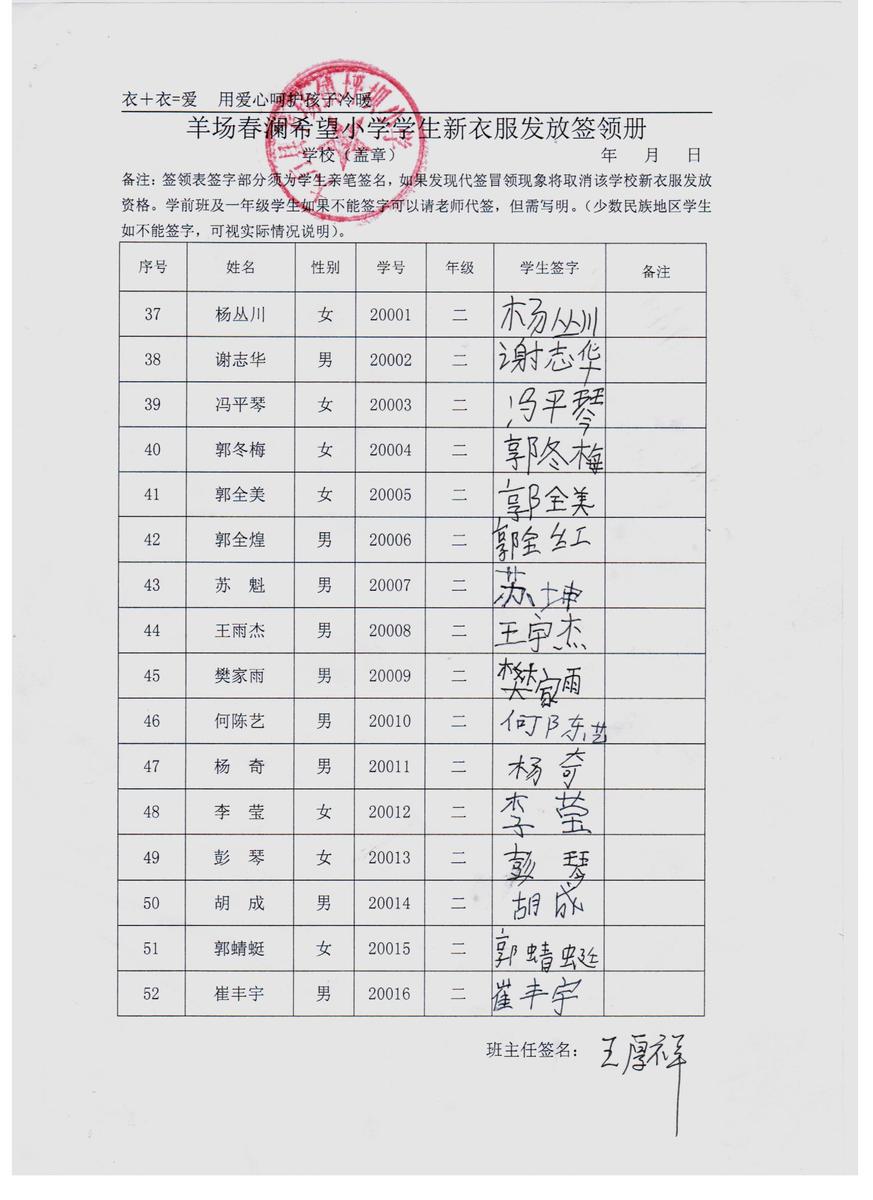 衣+衣=爱 用爱心呵护孩子冷暖
羊场春澜希望小学学生新衣服发放签领册
学校（盖章） 年 月 日
备注：签领表签字部分须为学生亲笔签名，如果发现代签冒领现象将取消该学校新衣服发放
资格。学前班及一年级学生如果不能签字可以请老师代签，但需写明。（少数民族地区学生
如不能签字，可视实际情况说明）。
序号 姓名 性别 学号 年级 学生签字 备注
37 杨丛川 女 20001 二 杨丛川
38 谢志华 男 20002 二 谢志华
39 冯平琴 女 20003 二 冯平琴
40 郭冬梅 女 20004 二 郭冬梅
41 郭全美 女 20005 二 郭全美
42 郭全煌 男 20006 二 郭全红
43 苏 魁 男 20007 二 苏坤
44 王雨杰 男 20008 二 王宇杰
45 樊家雨 男 20009 二 樊家雨
46 何陈艺 男 20010 二 何陈艺
47 杨 奇 男 20011 二 杨奇
48 李 莹 女 20012 二 李莹
49 彭 琴 女 20013 二 彭琴
50 胡 成 男 20014 二 胡成
51 郭蜻蜓 女 20015 二 郭蜻蜓
52 崔丰宇 男 20016 二 崔丰宇
班主任签名： 王厚祥